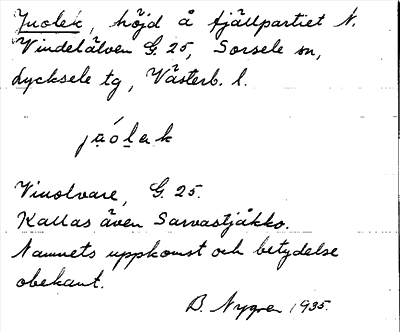 Juolek, höjd å fjällpartiet N.
Vindelälven G. 25, Sorsele sn,
Lycksele tg, Västerb. l.
jaólek
Vinolvare, G. 25.
Kallas även Sarvastjåkko.
Namnets uppkomst och betydelse
obekant.
B. Nygren 1935.